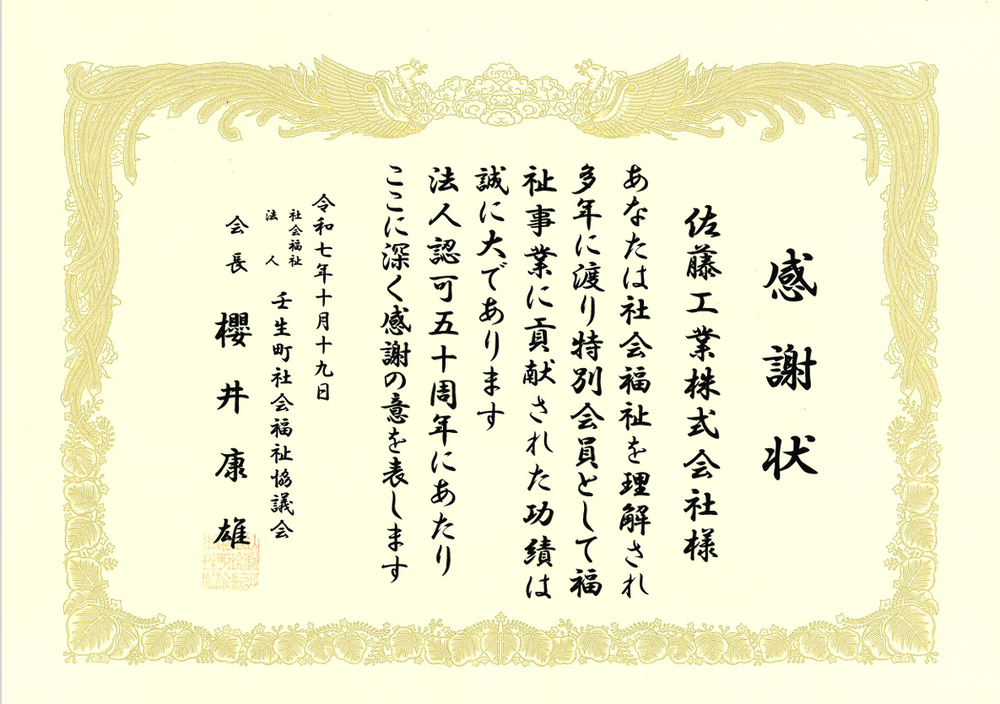 感謝状
佐藤工業株式会社様
あなたは社会福祉を理解され
多年に渡り特別会員として福
祉事業に貢献された功績は
誠に大であります
法人認可五十周年にあたり
ここに深く感謝の意を表します
令和七年十月十九日
社会福祉
法人
壬生町社会福祉協議会
会長 櫻井康雄